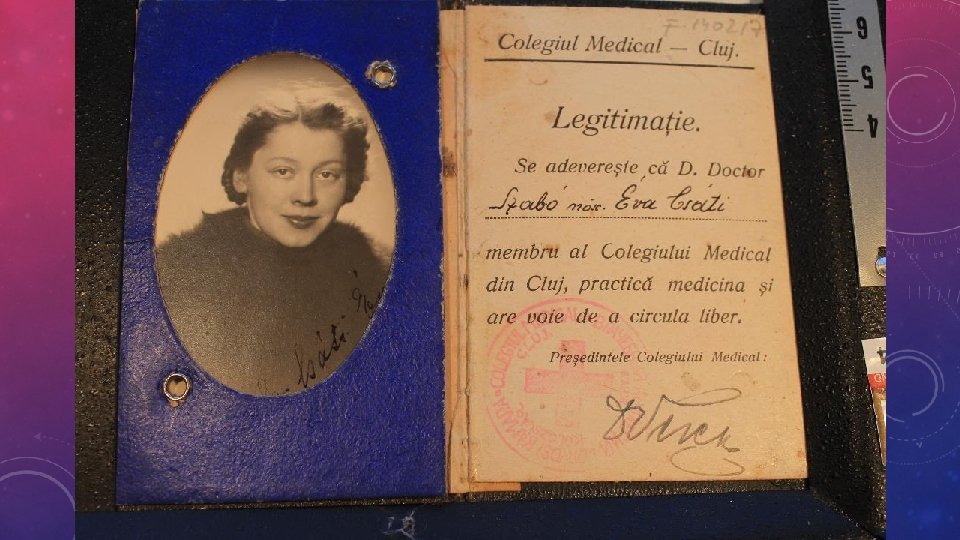 F 140217
Colegiul Medical — Cluj.
Legitimație.
Se adeverește că D. Doctor
Szabó năs. Éva Csáti
membru al Colegiului Medical
din Cluj, practică medicina și
are voie de a circula liber.
Președintele Colegiului Medical:
Csáti
6
5
4